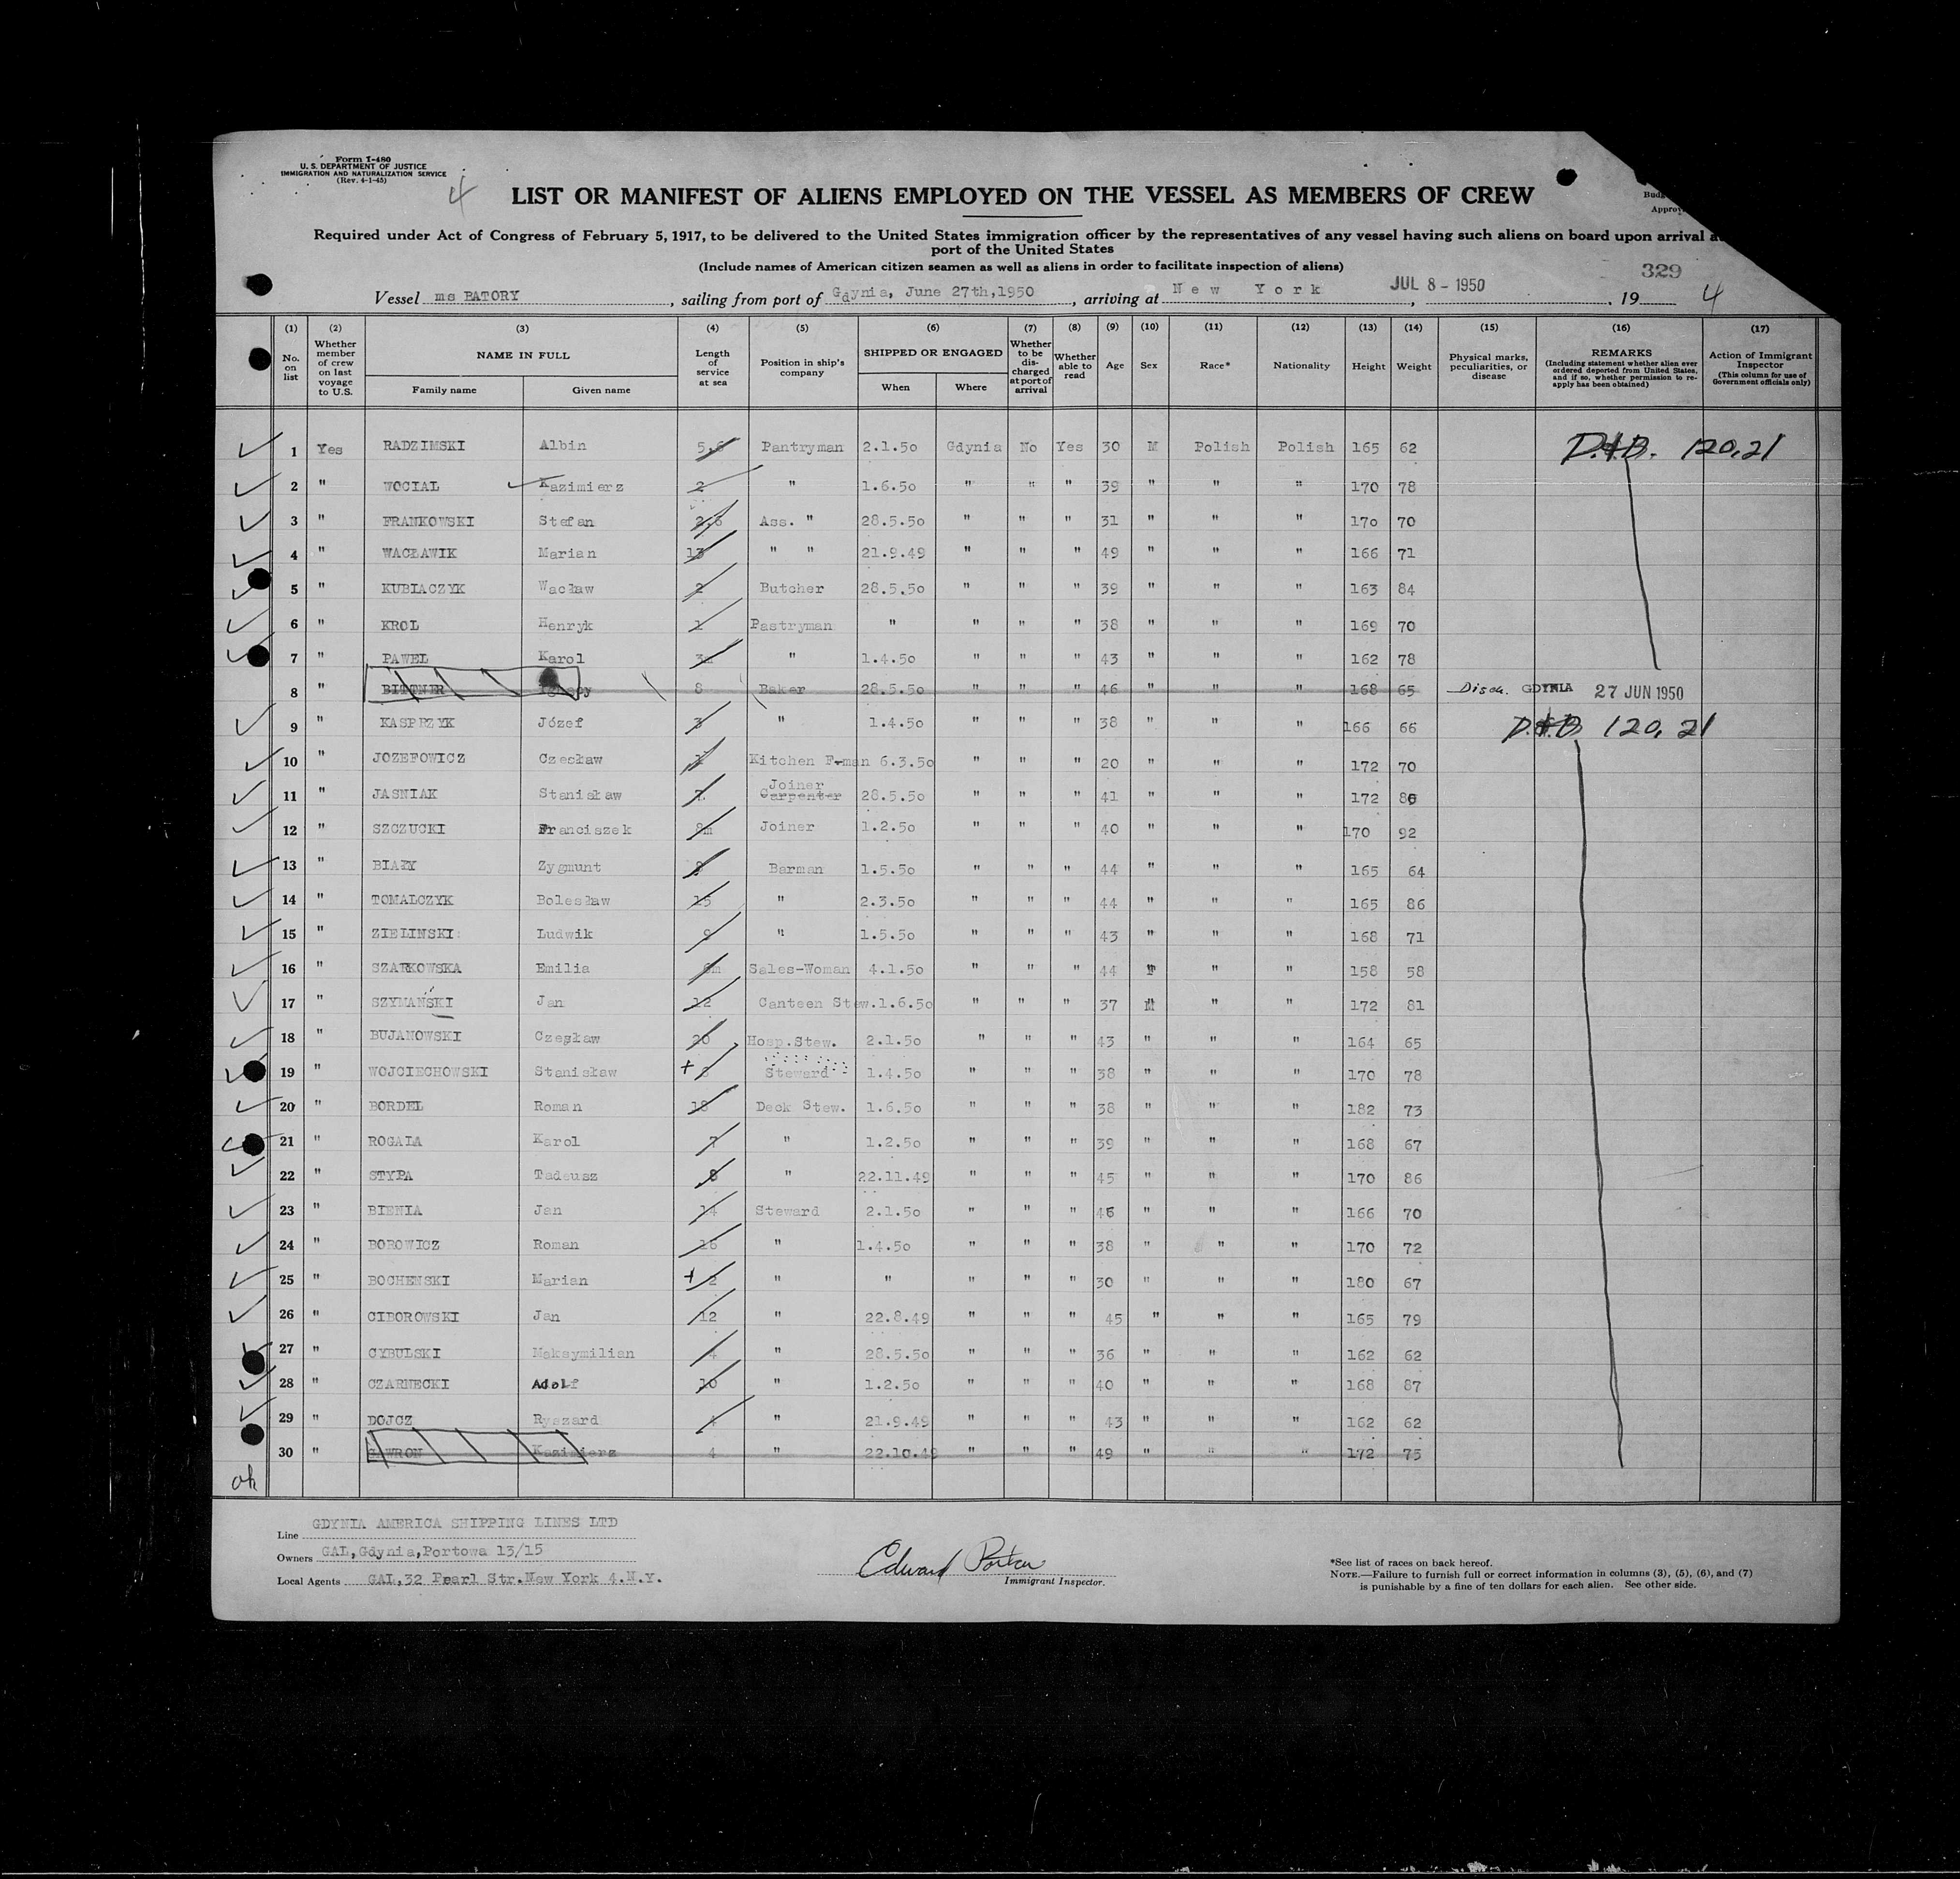 Form I-480
U. S. DEPARTMENT OF JUSTICE
IMMIGRATION AND NATURALIZATION SERVICE
(Rev. 4-1-45)
4
LIST OR MANIFEST OF ALIENS EMPLOYED ON THE VESSEL AS MEMBERS OF CREW
Required under Act of Congress of February 5, 1917, to be delivered to the United States immigration officer by the representatives of any vessel having such aliens on board upon arrival
port of the United States
(Include names of American citizen seamen as well as aliens in order to facilitate inspection of aliens)
329
Vessel ms BATORY, sailing from port of Gdynia, June 27th,1950, arriving at New York, JUL 8 - 1950, 19 4
(1) No. on list (2) Whether member of crew on last voyage to U.S. (3) NAME IN FULL Family name Given name (4) Length of service at sea (5) Position in ship's company (6) SHIPPED OR ENGAGED When Where (7) Whether to be discharged at port of arrival (8) Whether able to read (9) Age (10) Sex (11) Race* (12) Nationality (13) Height (14) Weight (15) Physical marks, peculiarities, or disease (16) REMARKS (Including statement whether alien ever ordered deported from United States, and if so, whether permission to re-apply has been obtained) (17) Action of Immigrant Inspector (This column for use of Government officials only)
1 Yes RADZIMSKI Albin 5,6 Pantryman 2.1.50 Gdynia No Yes 30 M Polish Polish 165 62 D.&B. 120,21
2 " WOCIAL Kazimierz 2 " 1.6.50 " " " 39 " " " 170 78
3 " FRANKOWSKI Stefan 2,6 Ass. " 28.5.50 " " " 31 " " " 170 70
4 " WACŁAWIK Marian 13 " " 21.9.49 " " " 49 " " " 166 71
5 " KUBIACZYK Wacław 2 Butcher 28.5.50 " " " 39 " " " 163 84
6 " KROL Henryk 1 Pastryman " " " " 38 " " " 169 70
7 " PAWEL Karol 3m " 1.4.50 " " " 43 " " " 162 78
8 " BITTNER Ignacy 8 Baker 28.5.50 " " " 46 " " " 168 65 Disch. GDYNIA 27 JUN 1950
9 " KASPRZYK Józef 3 " 1.4.50 " " " 38 " " " 166 66 D.&B 120, 21
10 " JOZEFOWICZ Czesław Kitchen F-man 6.3.50 " " " 20 " " " 172 70
11 " JASNIAK Stanisław 7 Joiner Carpenter 28.5.50 " " " 41 " " " 172 86
12 " SZCZUCKI Franciszek 8m Joiner 1.2.50 " " " 40 " " " 170 92
13 " BIAŁY Zygmunt Barman 1.5.50 " " " 44 " " " 165 64
14 " TOMALCZYK Bolesław 15 " 2.3.50 " " " 44 " " " 165 86
15 " ZIELINSKI Ludwik 9 " 1.5.50 " " " 43 " " " 168 71
16 " SZARKOWSKA Emilia 6m Sales-Woman 4.1.50 " " " 44 F " " 158 58
17 " SZYMAŃSKI Jan 12 Canteen Stew. 1.6.50 " " " 37 M " " 172 81
18 " BUJANOWSKI Czesław 20 Hosp.Stew. 2.1.50 " " " 43 " " " 164 65
19 " WOJCIECHOWSKI Stanisław + 8 Steward 1.4.50 " " " 38 " " " 170 78
20 " BORDEL Roman 18 Deck Stew. 1.6.50 " " " 38 " " " 182 73
21 " ROGALA Karol 7 " 1.2.50 " " " 39 " " " 168 67
22 " STYPA Tadeusz 8 " 22.11.49 " " " 45 " " " 170 86
23 " BIENIA Jan 14 Steward 2.1.50 " " " 46 " " " 166 70
24 " BOROWICZ Roman 16 " 1.4.50 " " " 38 " " " 170 72
25 " BOCHENSKI Marian + 2 " " " " " 30 " " " 180 67
26 " CIBOROWSKI Jan 12 " 22.8.49 " " " 45 " " " 165 79
27 " CYBULSKI Maksymilian 4 " 28.5.50 " " " 36 " " " 162 62
28 " CZARNECKI Adolf 10 " 1.2.50 " " " 40 " " " 168 87
29 " DOJCZ Ryszard 4 " 21.9.49 " " " 43 " " " 162 62
30 " GAWRON Kazimierz 4 " 22.10.49 " " " 49 " " " 172 75
ok
Line GDYNIA AMERICA SHIPPING LINES LTD
Owners GAL,Gdynia,Portowa 13/15
Local Agents GAL,32 Pearl Str.New York 4.N.Y.
Edward Porter
Immigrant Inspector.
*See list of races on back hereof.
NOTE.—Failure to furnish full or correct information in columns (3), (5), (6), and (7)
is punishable by a fine of ten dollars for each alien. See other side.